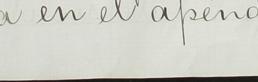 a en el apend